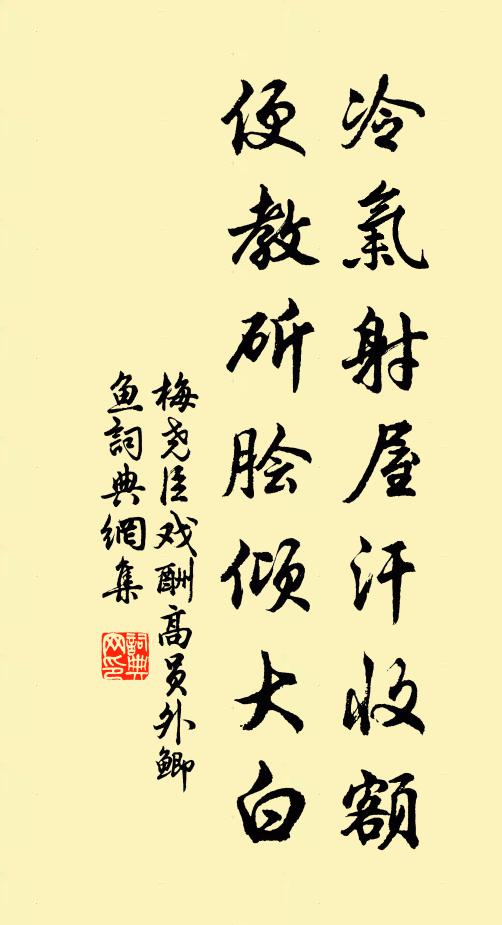 冷氣射屋汗收額
便教斫脍傾大白
梅尧臣戏酬高员外鲫
鱼詞典網集
詞典网印